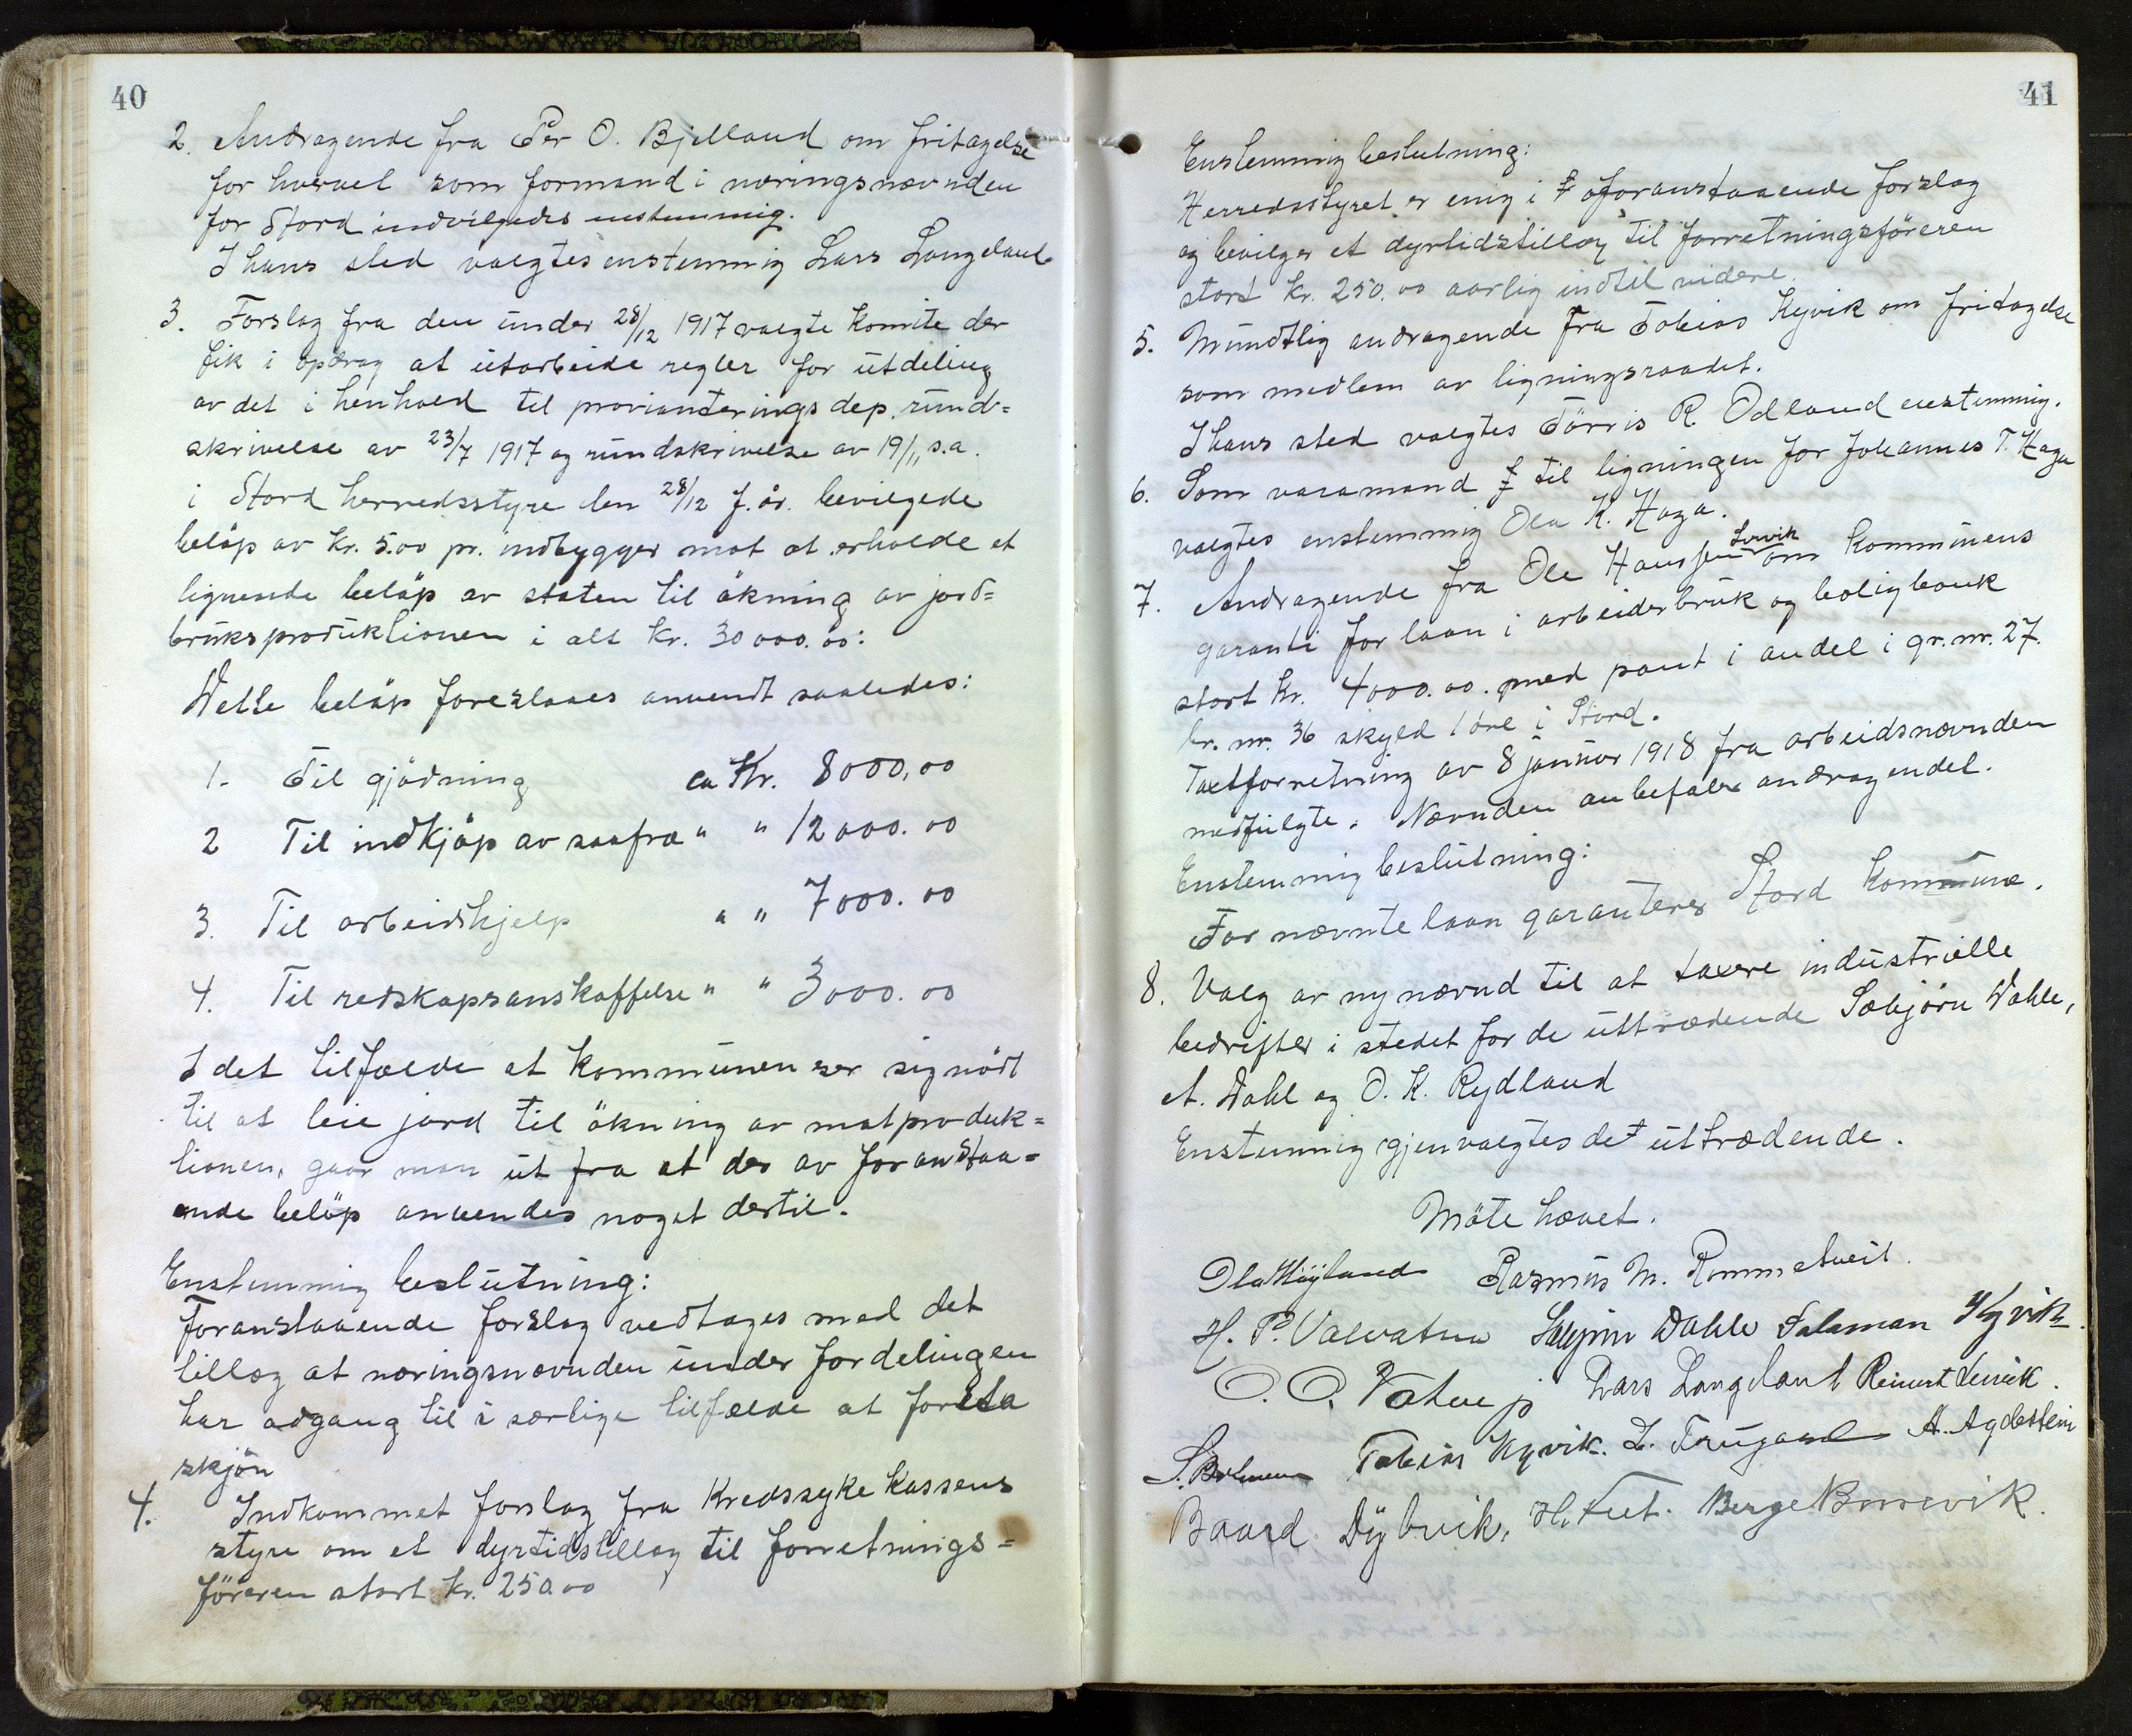 40
2. Andragende fra Per O. Bjelland om fritagelse
for hvervet som formand i næringsnævnden
for Stord indvilgedes enstemmig.
I hans sted valgtes enstemmig Lars Langeland
3. Forslag fra den under 28/12 1917 valgte komite der
fik i opdrag at utarbeide regler for utdeling
av det i henhold til provianteringsdep. rund=
skrivelse av 23/7 1917 og rundskrivelse av 19/11 s.a.
i Stord herredsstyre den 28/12 f. år. bevilgede
beløp av kr. 5.00 pr. indbygger mot at erholde et
lignende beløp av staten til økning av jord=
bruksproduktionen i alt kr. 30000.00:
Dette beløp foreslaaes anvendt saaledes:
1. Til gjødning ca Kr. 8000,00
2 Til indkjøp av saafrø " " 12000.00
3. Til arbeidshjelp " " 7000.00
4. Til redskapsanskaffelse " " 3000.00
I det tilfælde at kommunen ser sig nødt
til at leie jord til økning av matproduk=
tionen, gaar man ut fra at der av foranstaa=
ende beløp anvendes noget dertil.
Enstemmig beslutning:
Foranstaaende forslag vedtages med det
tillæg at næringsnævnden under fordelingen
har adgang til i særlige tilfælde at foreta
skjøn
4. Indkommet forslag fra Kredssykekassens
styre om et dyrtidstillæg til forretnings=
føreren stort kr. 250.00
41
Enstemmig beslutning:
Herredsstyret er enig i foranstaaende forslag
og bevilger et dyrtidstillæg til forretningsføreren
stort kr. 250.00 aarlig indtil videre.
5. Mundtlig andragende fra Tobias Kyvik om fritagelse
som medlem av ligningsraadet.
I hans sted valgtes Tørris R. Odland enstemmig.
6. Som varamand til ligningen for Johannes T. Haga
valgtes enstemmig Ola K. Haga.
7. Andragende fra Ole Hansen Lervik om kommunens
garanti for laan i arbeiderbruk og boligbank
stort kr. 4000.00. med pant i andel i gr. nr. 27.
br. nr. 36 skyld 1 øre i Stord.
Taxtforretning av 8 januar 1918 fra arbeidsnævnden
medfulgte. Nævnden anbefaler andragendet.
Enstemmig beslutning:
For nævnte laan garanterer Stord Kommune.
8. Valg av ny nævnd til at taxere industrielle
bedrifter i stedet for de uttrædende Sæbjørn Dahle,
A. Dahl og O. K. Rydland
Enstemmig gjenvalgtes de uttrædende.
Møte hævet.
Ola Høyland Rasmus M. Rommetveit.
H. P. Valvatna Sæbjørn Dahle Salamon Kyvik.
O. O. Vatne jr Lars Langeland Reinert Lervik.
Tobias Kyvik. A. Agdestein
Baard Dybvik, H. Tveit. Berge Børsevik.